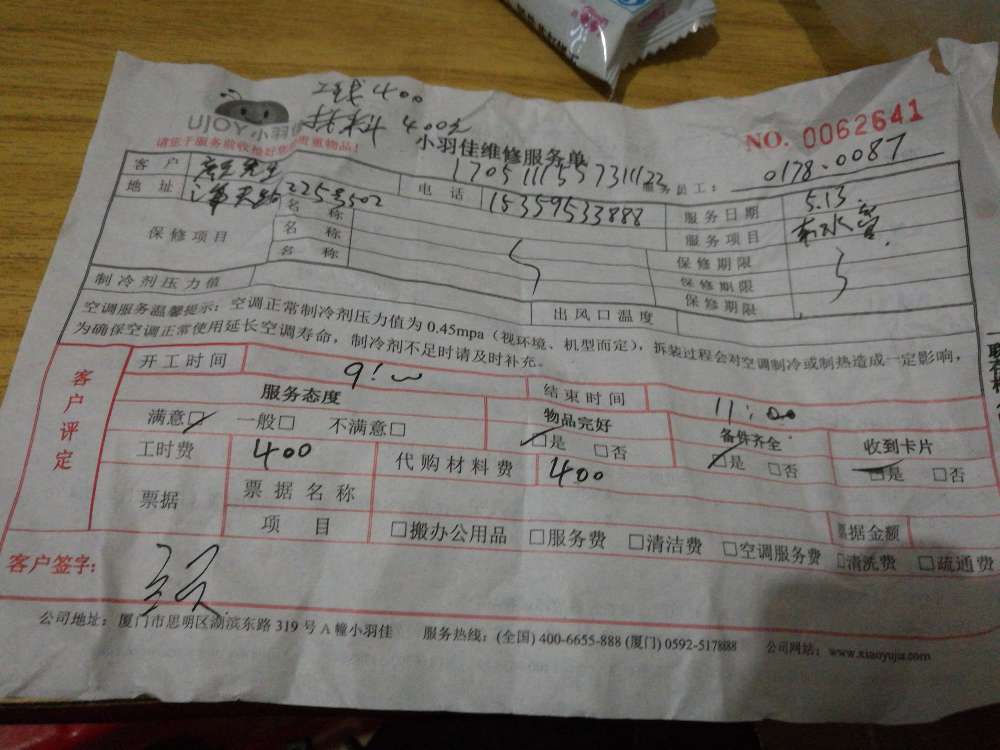 工钱400
材料 400元
UJOY 小羽佳
请您于服务验收检好您的贵重物品!
小羽佳维修服务单
NO. 0062641
1705111557311122 服务员工: 0178.0087
客户 先生 电话 18359533888 服务日期 5.13
地址 225号502 服务项目 水管
保修项目 名称 保修期限
名称 保修期限
名称 保修期限
制冷剂压力值 出风口温度
空调服务温馨提示: 空调正常制冷剂压力值为 0.45mpa (视环境、机型而定), 拆装过程会对空调制冷或制热造成一定影响,
为确保空调正常使用延长空调寿命, 制冷剂不足时请及时补充。
客户评定
开工时间 9:00 结束时间 11:00
服务态度 物品完好 备件齐全 收到卡片
满意☑ 一般□ 不满意□ ☑是 □否 ☑是 □否 ☑是 □否
工时费 400 代购材料费 400
票据 票据名称 票据金额
项目 □搬办公用品 □服务费 □清洁费 □空调服务费 □清洗费 □疏通费
客户签字:
公司地址: 厦门市思明区湖滨东路 319 号 A 幢小羽佳 服务热线: (全国) 400-6655-888 (厦门) 0592-517888 公司网站: www.xiaoyujia.com